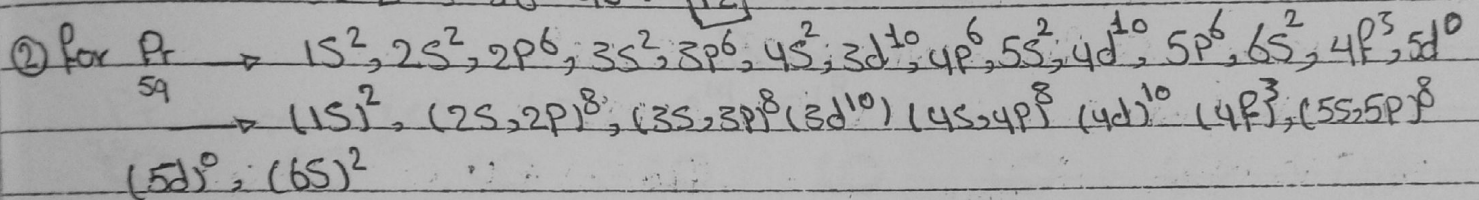 ② for Pr → 1S², 2S², 2P⁶, 3S², 3P⁶, 4S², 3d¹⁰, 4P⁶, 5S², 4d¹⁰, 5P⁶, 6S², 4f³, 5d⁰
59
→ (1S)², (2S, 2P)⁸, (3S, 3P)⁸ (3d¹⁰) (4S, 4P)⁸ (4d)¹⁰ (4f)³, (5S, 5P)⁸
(5d)⁰, (6S)²